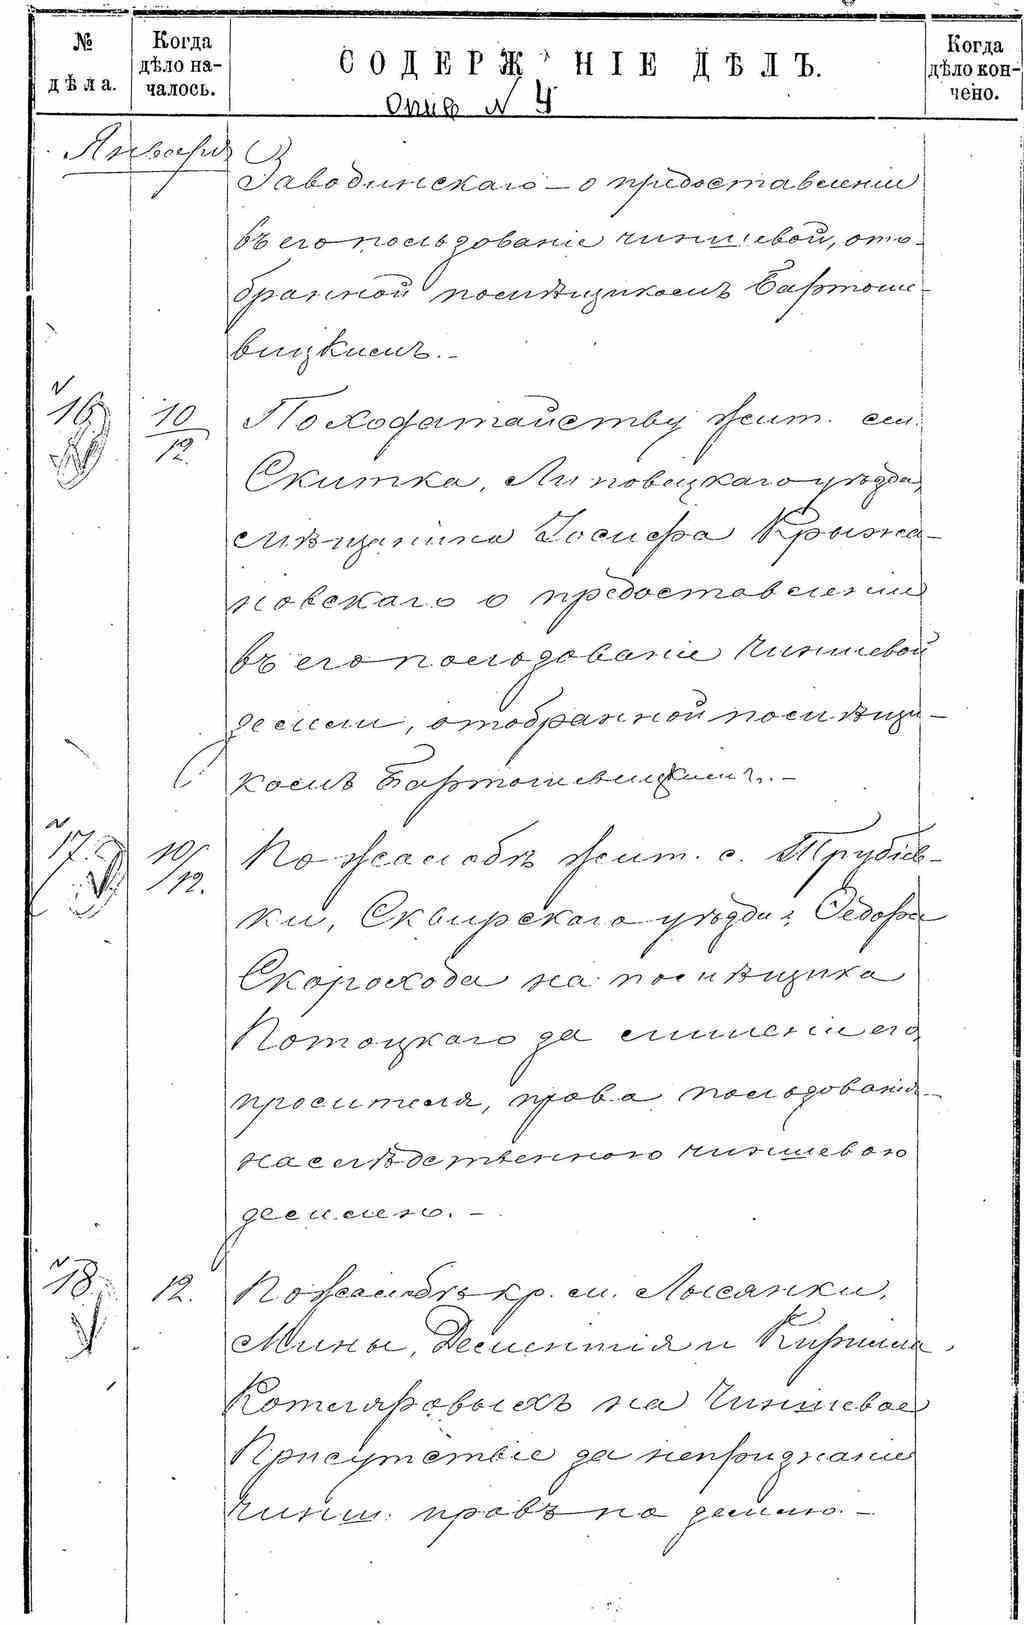 № дѣла.
Когда дѣло началось.
СОДЕРЖАНІЕ ДѢЛЪ.
Когда дѣло кончено.
Опис N 4
Января
Заводинскаго – о предоставленіи
въ его пользованіе чиншевой, ото-
бранной помѣщикомъ Бартоше-
вицкимъ. –
16 10/12 По ходатайству жит. сел.
Скитка, Липовецкаго уѣзда,
мѣщанина Іосифа Крыжа-
новскаго о предоставленіи
въ его пользованіе чиншевой
земли, отобранной помѣщи-
комъ Бартошевицкимъ. –
17. 10/12. По жалобѣ жит. с. Трубіев-
ки, Сквирскаго уѣзда, Ѳедора
Скорохода на помѣщика
Потоцкаго за лишеніе его,
просителя, права пользованія
наслѣдственною чиншевою
землею. –
18 12. По жалобѣ кр. м. Лысянки,
Мины, Дементія и Кирилла
Котляровыхъ на Чиншевое
Присутствіе за непризнаніе
чинш. правъ на землю. –